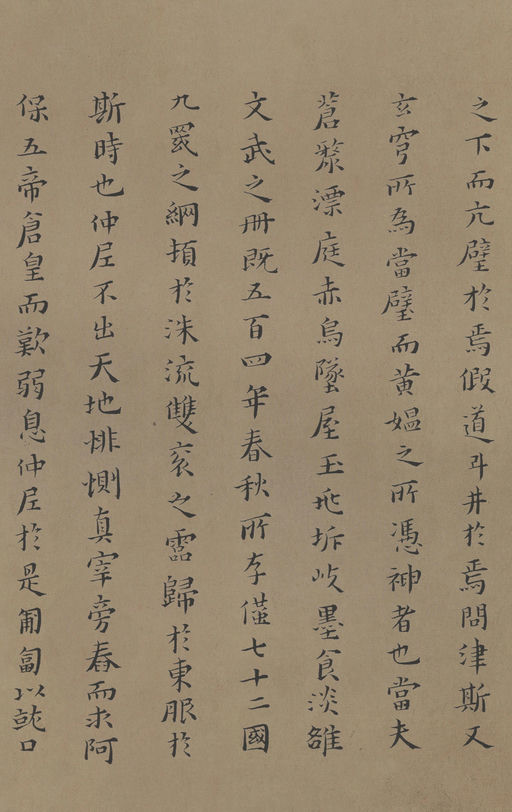 之下而亢璧於焉假道斗井於焉問津斯又
玄穹所為當璧而黄媪之所憑神者也當夫
蒼漦漂庭赤烏墜屋玉兆坼岐墨食淡雒
文武之冊既五百四年春秋所存僅七十二國
九罭之綱頓於洙流雙衮之靈歸於東服於
斯時也仲尼不出天地悱惻真宰旁舂而求阿
保五帝倉皇而歎弱息仲尼於是匍匐以就口